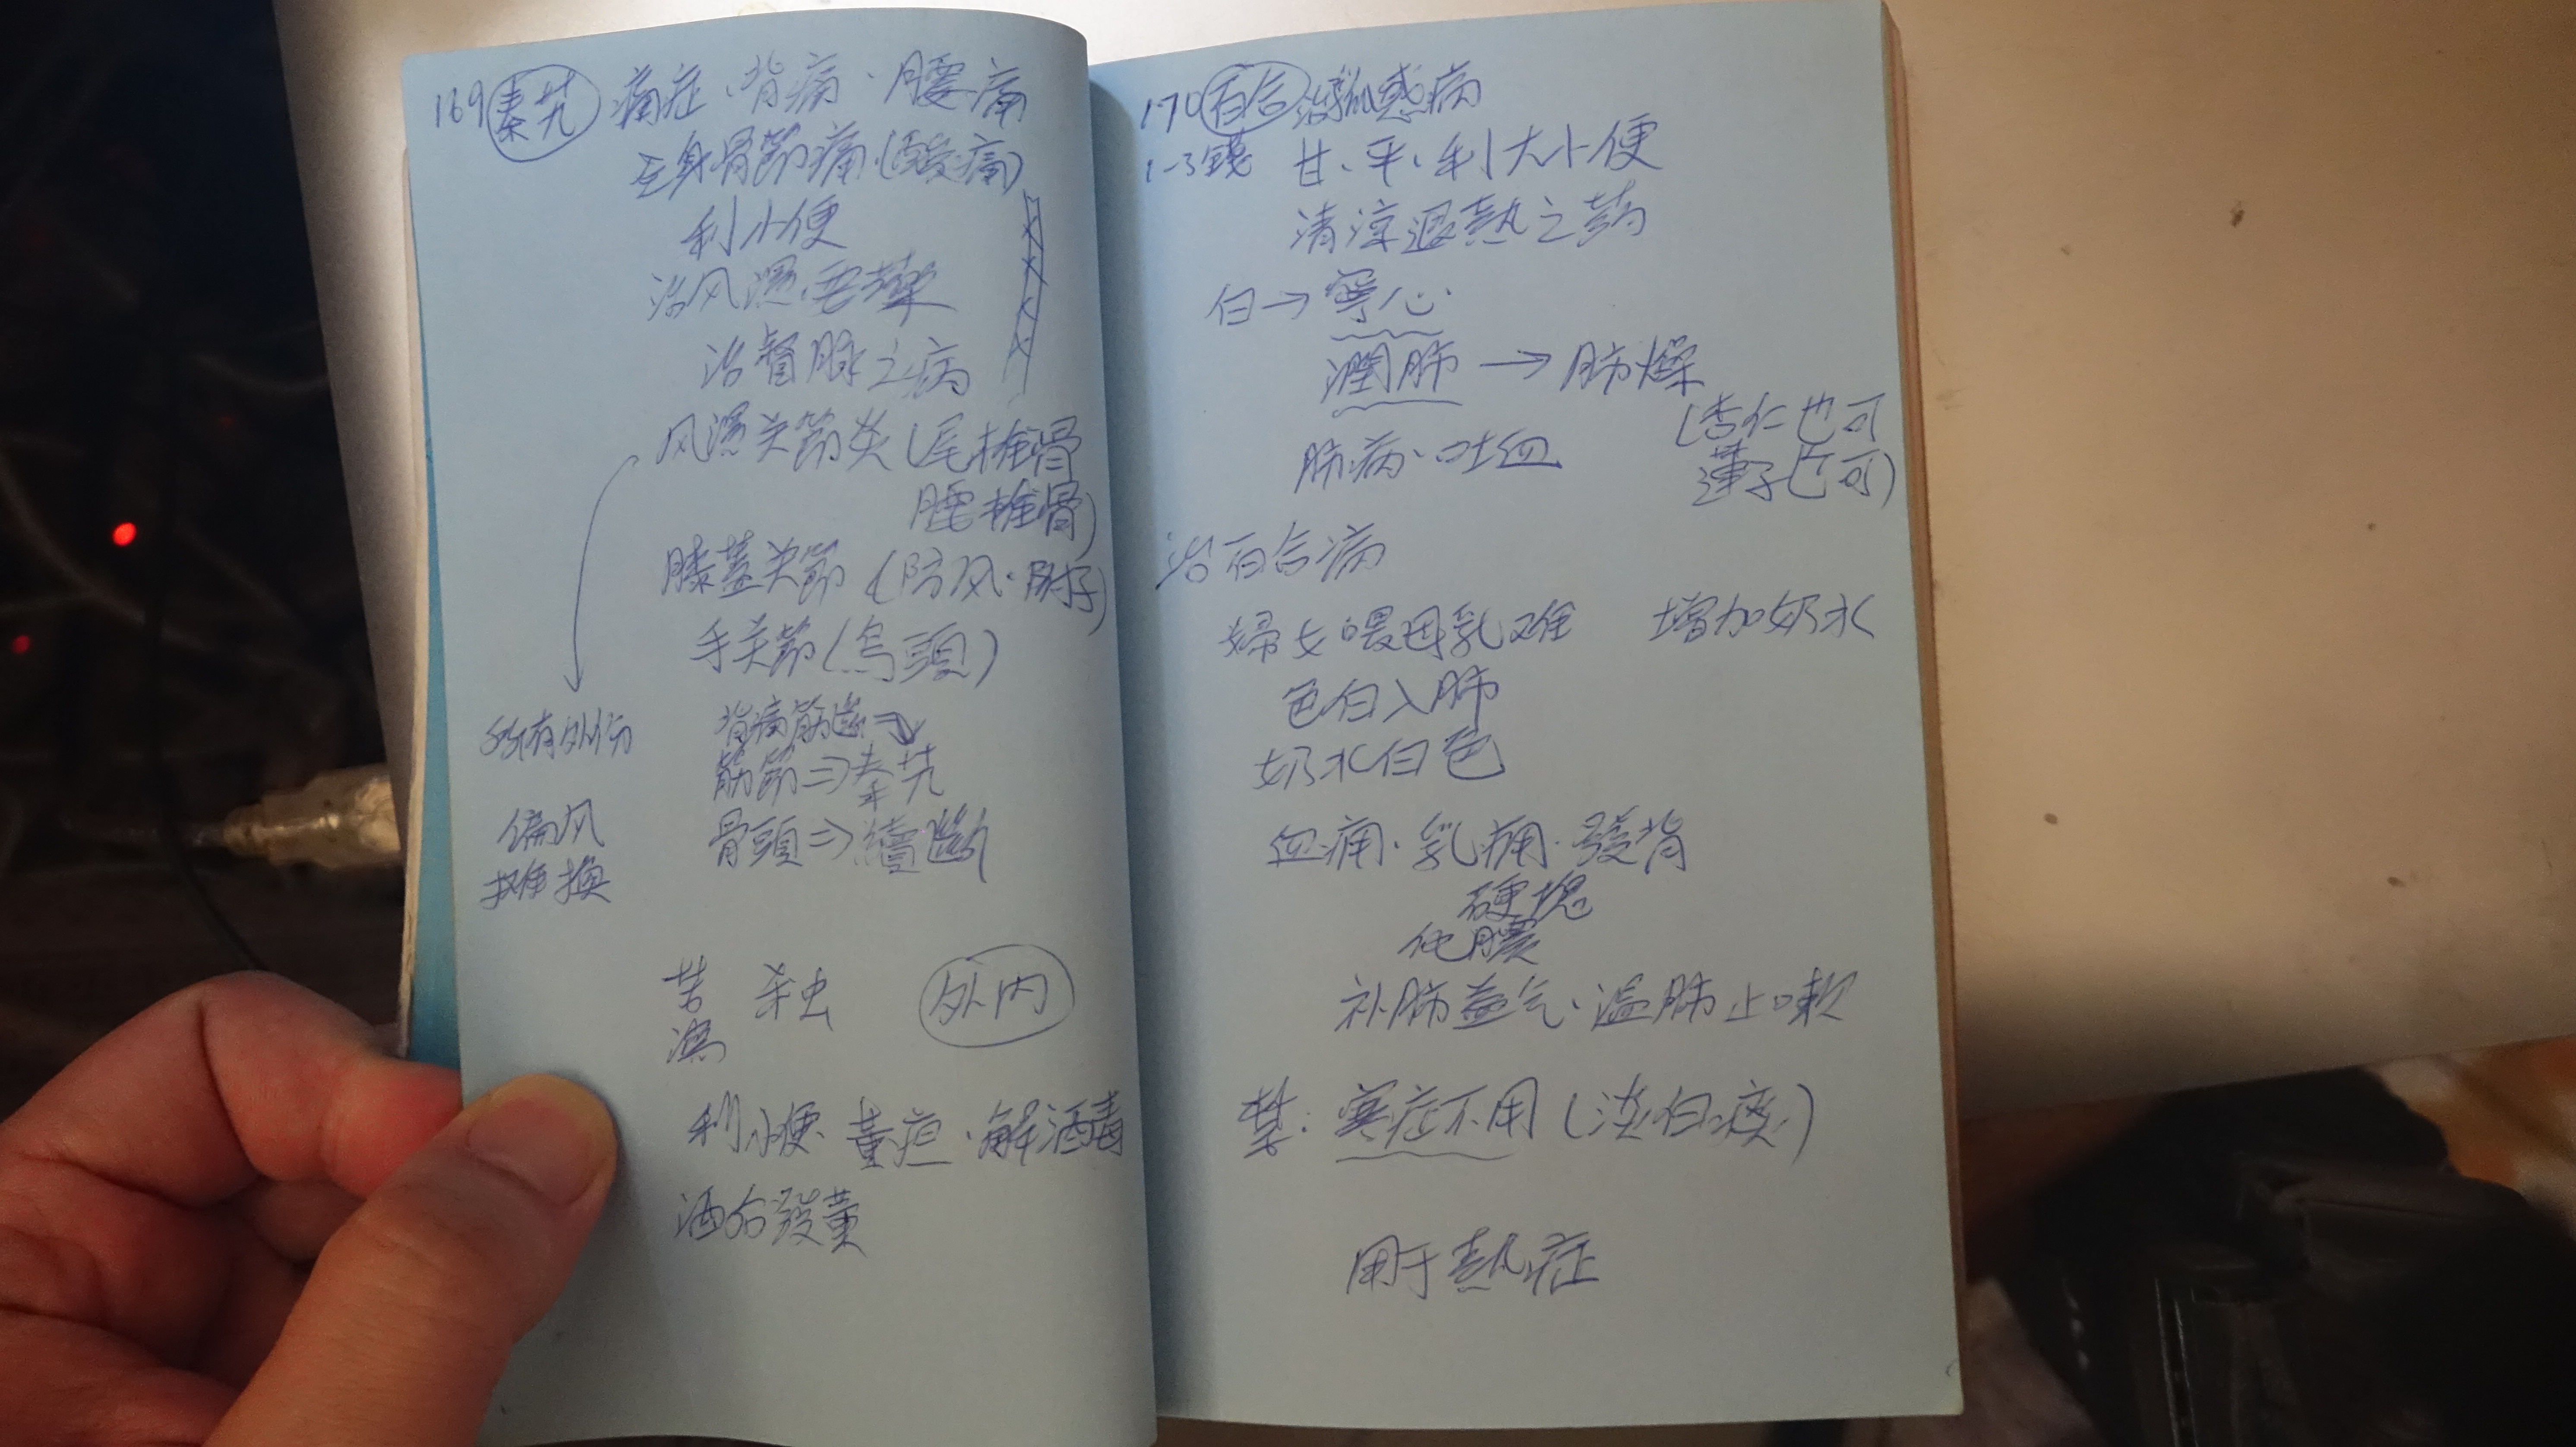 169 秦艽 痛症、背痛、腰痛
全身骨節痛(酸痛)
利小便
治风濕要藥
治督脉之病
风濕关節炎(尾椎骨
腰椎骨)
膝蓋关節(防风·附子)
手关節(烏頭)
所有外伤
背痛筋遊⇒
筋節⇒秦艽
骨頭⇒續斷
偏风
摊換
苦 独 外内
濕
利小便 黄疸、解酒毒
酒后發黄
170 百合 治孤惑病
1-3錢 甘、平、利大小便
清涼退熱之药
白→寧心
潤肺→肺燥
(杏仁也可
蓮子也可)
肺病、吐血
治百合病
婦女喂母乳难 增加奶水
色白入肺
奶水白色
血痛、乳痈、發背
硬塊
化膿
补肺益气、温肺止嗽
禁:寒症不用(淡白痰)
用于熱症